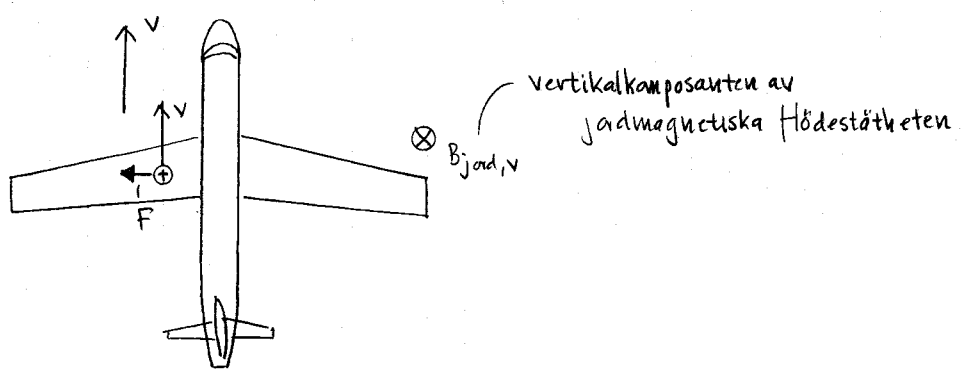 v
v
F
B jord, v
vertikalkomposanten av
jordmagnetiska flödestätheten